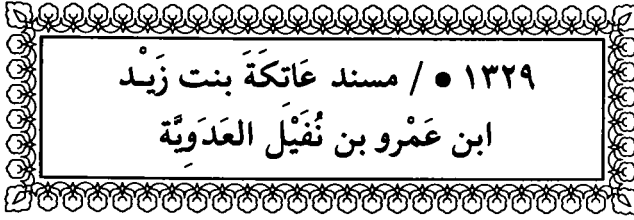 ١٣٢٩ • / مسند عَاتكَةَ بنت زَيْد
ابن عَمْرو بن نُفَيْل العَدَوِيَّة